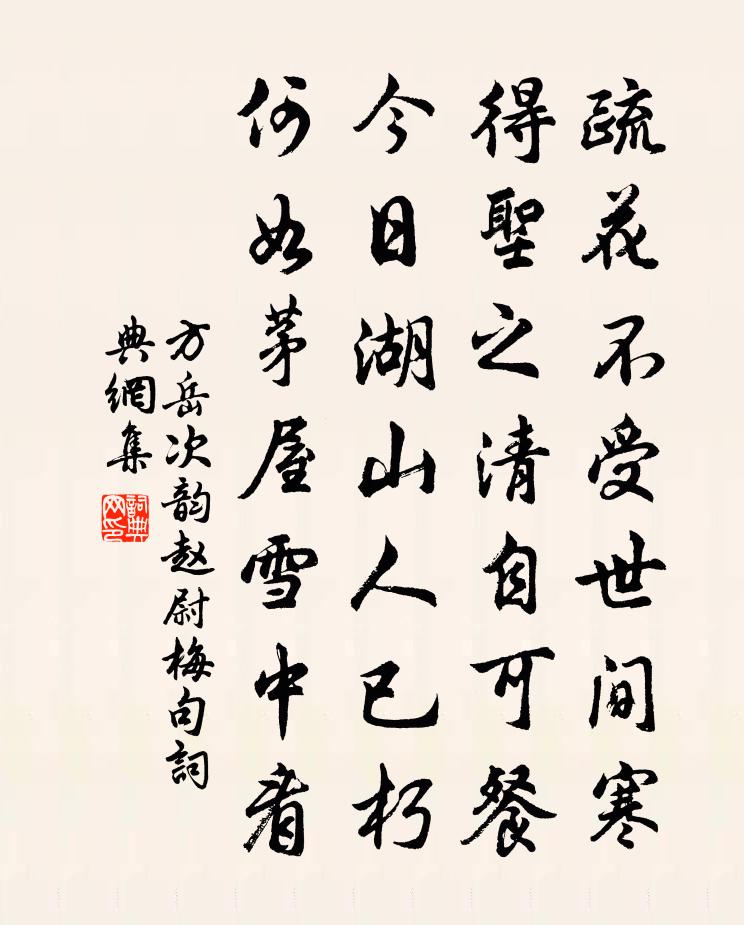 疏花不受世间寒
得聖之清自可餐
今日湖山人已朽
何如茅屋雪中看
方岳次韵赵尉梅句詞
典網集
詞典
网印